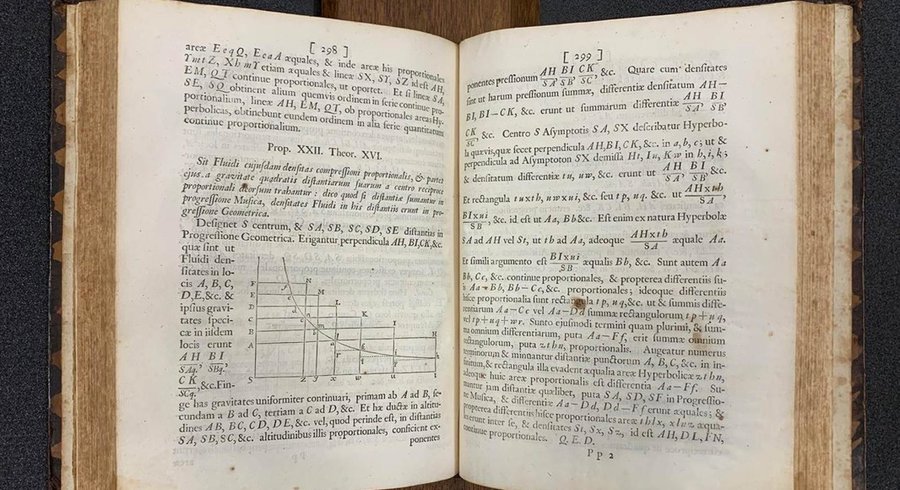 [ 298 ]
areæ EeqQ, EeaA æquales, & inde areæ his proportionales
YmtZ, XhmY etiam æquales & lineæ SX, SY, SZ id est AH,
EM, QT continue proportionales, ut oportet. Et si lineæ SA,
SE, SQ obtinent alium quemvis ordinem in serie continue pro-
portionalium, lineæ AH, EM, QT, ob proportionales areas Hy-
perbolicas, obtinebunt eundem ordinem in alia serie quantitatum
continue proportionalium.
Prop. XXII. Theor. XVI.
Sit Fluidi cujusdam densitas compressioni proportionalis, & partes
ejus a gravitate quadratis distantiarum suarum a centro reciproce
proportionali deorsum trahantur : dico quod si distantiæ sumantur in
progressione Musica, densitates Fluidi in his distantiis erunt in pro-
gressione Geometrica.
Designet S centrum, & SA, SB, SC, SD, SE distantias in
Progressione Geometrica. Erigantur perpendicula AH, BI, CK, &c.
quæ sint ut
Fluidi den-
sitates in lo-
cis A, B, C,
D, E, &c. &
ipsius gravi-
tates speci-
cæ in iisdem
locis erunt
AH BI
SAq.' SBq.'
CK
SCq. ,&c. Fin-
ge has gravitates uniformiter continuari, primam ab A ad B, se-
cundam a B ad C, tertiam a C ad D, &c. Et hæ ductæ in altitu-
dines AB, BC, CD, DE, &c. vel, quod perinde est, in distantias
SA, SB, SC, &c. altitudinibus illis proportionales, conficient ex-
ponentes
[ 299 ]
ponentes pressionum AH/SA, BI/SB, CK/SC, &c. Quare cum densitates
sint ut harum pressionum summæ, differentiæ densitatum AH—
BI, BI—CK, &c. erunt ut summarum differentiæ AH/SA, BI/SB,
CK/SC, &c. Centro S Asymptotis SA, SX describatur Hyperbo-
la quævis, quæ secet perpendicula AH, BI, CK, &c. in a, b, c; ut &
perpendicula ad Asymptoton SX demissa Ht, Iu, Kw in h, i, k;
& densitatum differentiæ tu, uw, &c. erunt ut AH/SA, BI/SB, &c.
Et rectangula tu×th, uw×ui, &c. seu tp, uq, &c. ut AH×th/SA,
BI×ui/SB, &c. id est ut Aa, Bb &c. Est enim ex natura Hyperbolæ
SA ad AH vel St, ut th ad Aa, adeoque AH×th/SA æquale Aa.
Et simili argumento est BI×ui/SB æqualis Bb, &c. Sunt autem Aa
Bb, Cc, &c. continue proportionales, & propterea differentiis su-
is Aa—Bb, Bb—Cc, &c. proportionales; ideoque differentiis
hisce proportionalia sunt rectangula tp, uq, &c. ut & summis diffe-
rentiarum Aa—Cc vel Aa—Dd summæ rectangulorum tp+uq,
vel tp+uq+wr. Sunto ejusmodi termini quam plurimi, & sum-
ma omnium differentiarum, puta Aa—Ff, erit summæ omnium
rectangulorum, puta zthn, proportionalis. Augeatur numerus
terminorum & minuantur distantiæ punctorum A, B, C, &c. in in-
finitum, & rectangula illa evadent æqualia areæ Hyperbolicæ zthn,
adeoque huic areæ proportionalis est differentia Aa—Ff. Su-
mantur jam distantiæ quælibet, puta SA, SD, SF in Progressio-
ne Musica, & differentiæ Aa—Dd, Dd—Ff erunt æquales; &
propterea differentiis hisce proportionales areæ thlx, xlnz æqua-
erunt inter se, & densitates St, Sx, Sz, id est AH, DL, FN,
continue proportionales. Q. E. D.
Pp 2